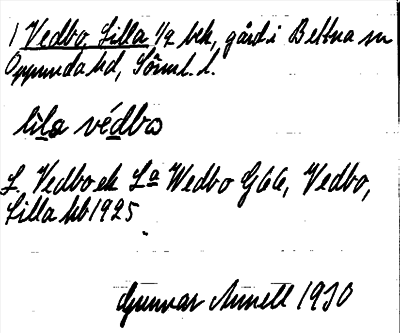 1 Vedbo, Lilla 1/2 bek, gård i Bettna sn
Oppunda hd, Sörml. l.
lila védbo
L. Vedbo ek La Wedbo G66, Vedbo,
Lilla kb 1925
Gunnar Annell 1930